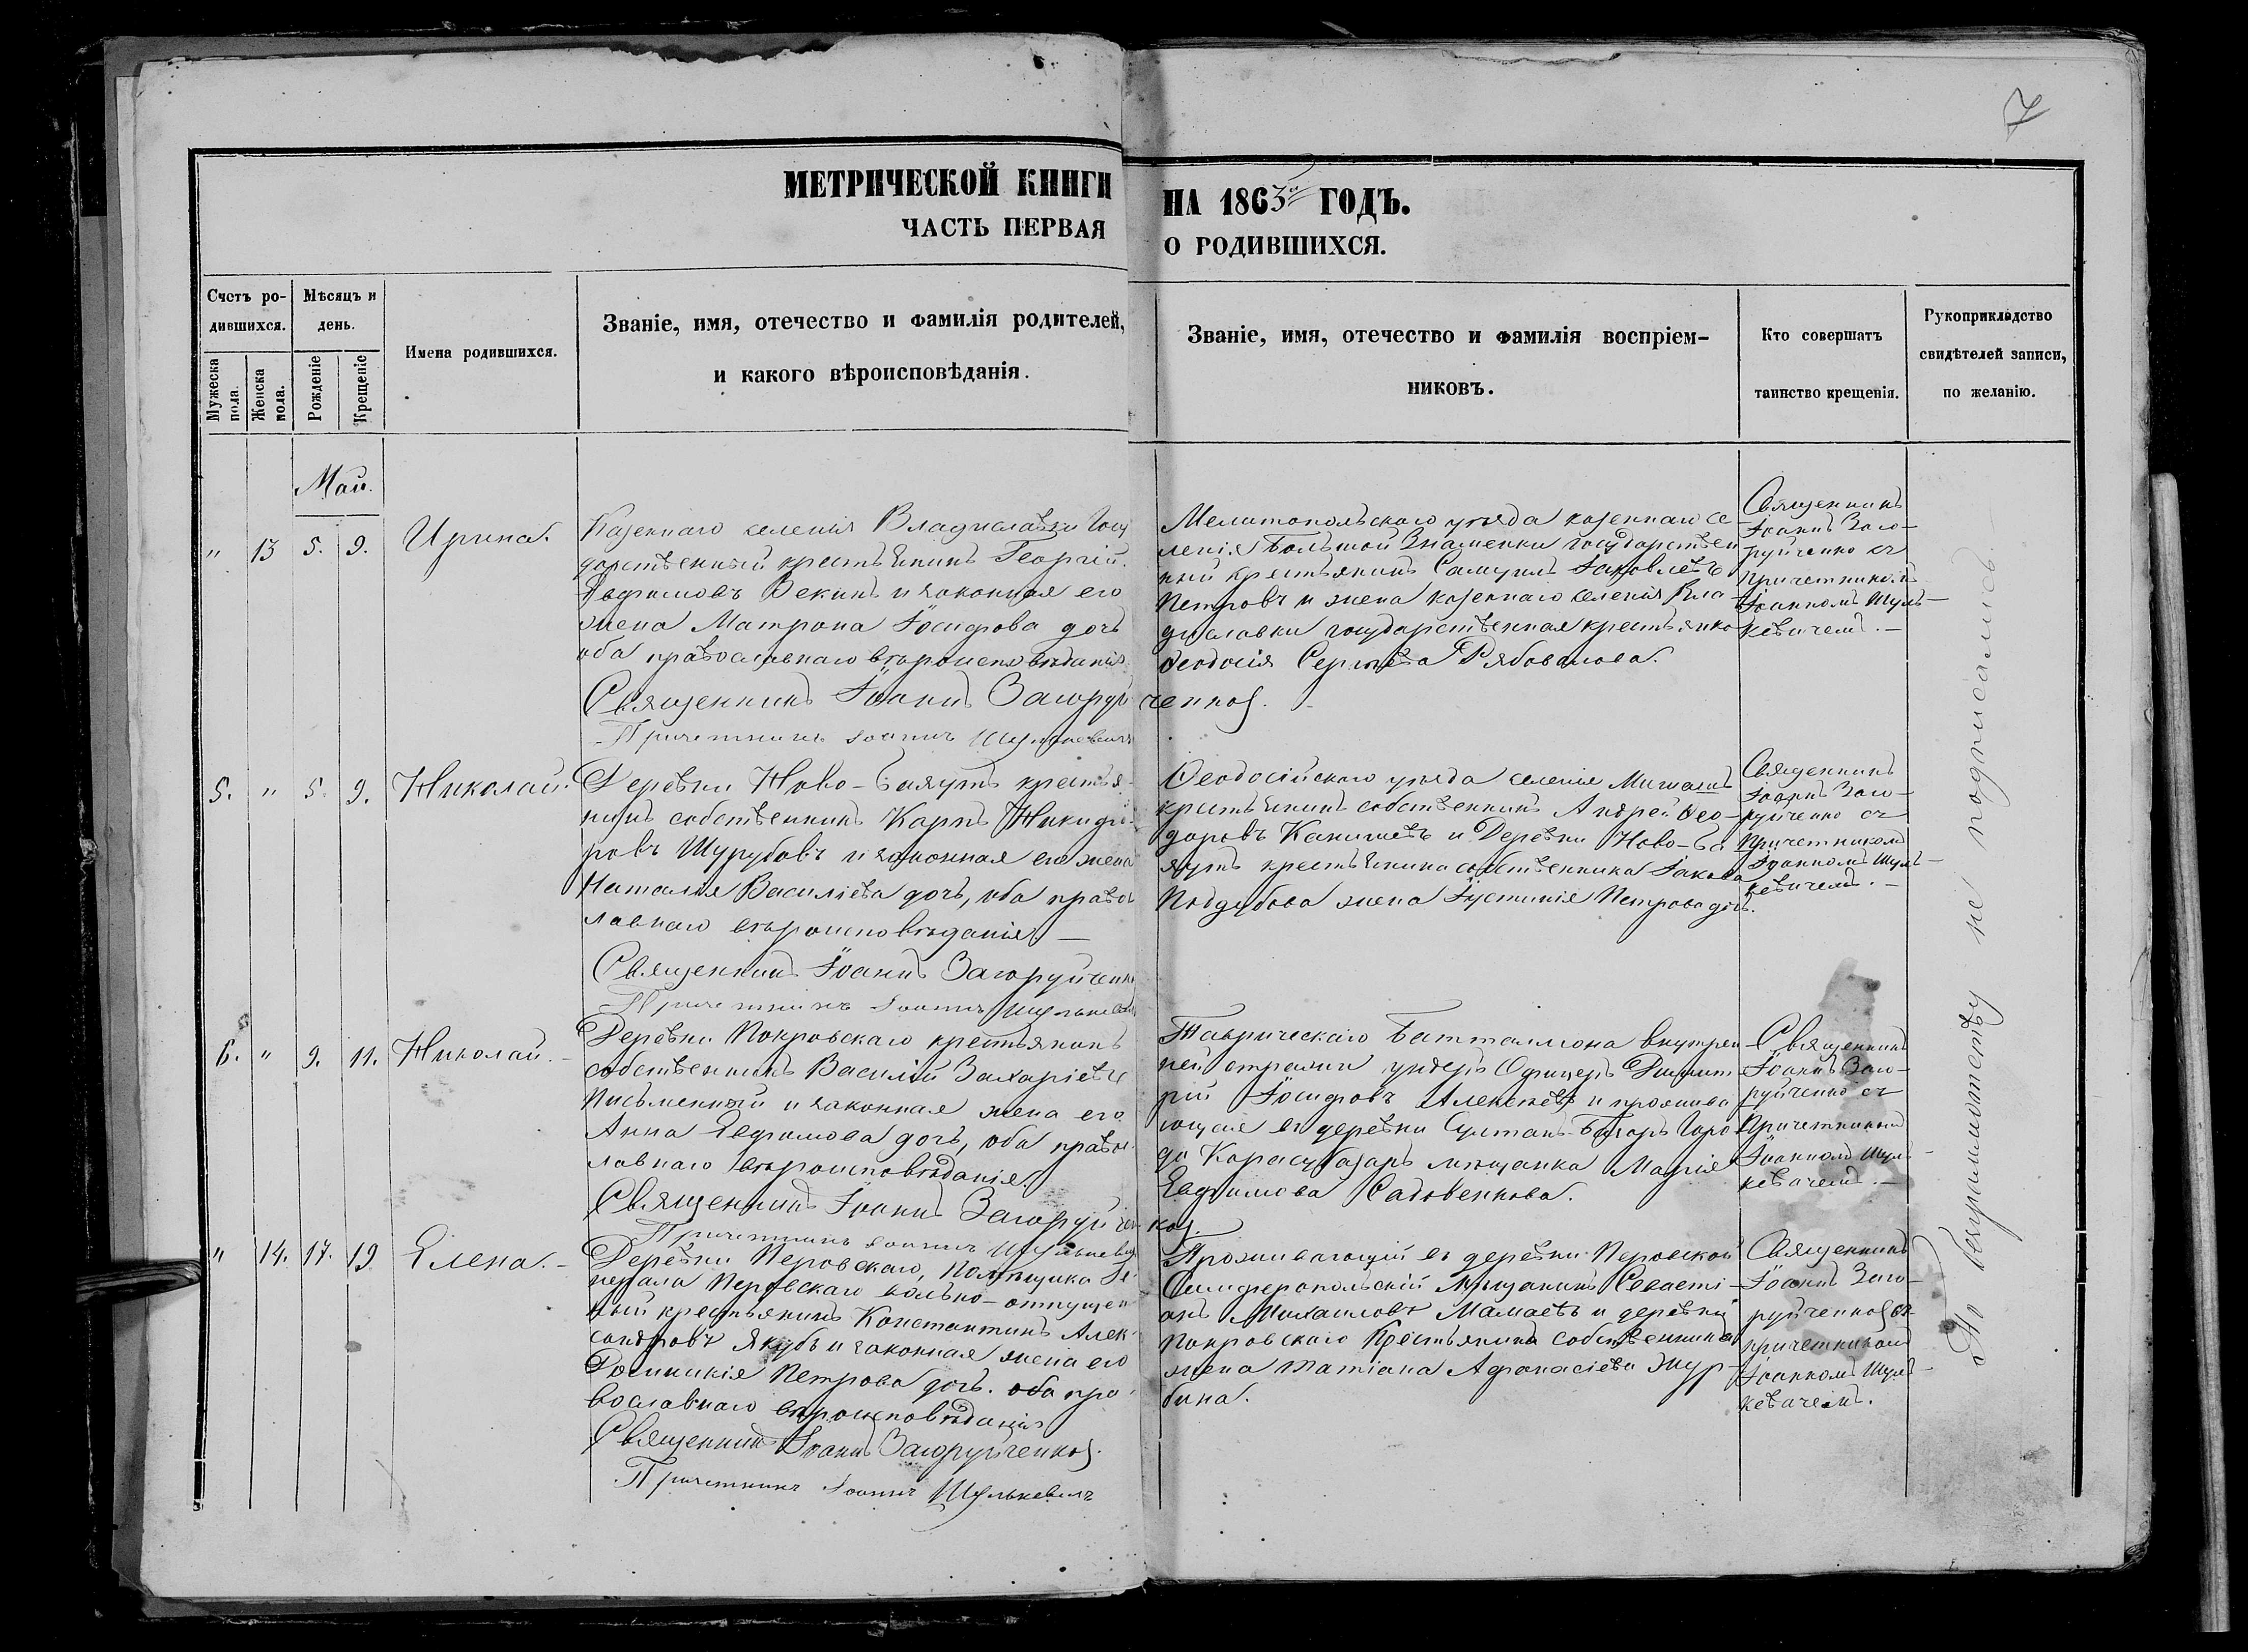 7
МЕТРИЧЕСКОЙ КНИГИ НА 1863й ГОДЪ.
ЧАСТЬ ПЕРВАЯ О РОДИВШИХСЯ.
Счетъ ро-
дившихся.
Мужеска пола.
Женска пола.
Мѣсяцъ и
день.
Рожденіе
Крещеніе
Имена родившихся.
Званіе, имя, отечество и фамилія родителей,
и какого вѣроисповѣданія.
Званіе, имя, отечество и фамилія воспріем-
никовъ.
Кто совершатъ
таинство крещенія.
Рукоприкладство
свидѣтелей записи,
по желанію.
Май.
" 13 5. 9. Ирина.
Казеннаго селенія Владиславки Госу
дарственный крестьянинъ Георгій
Евфимовъ и законная его
жена Матрона Іосифова дочь
оба православнаго вѣроисповѣданія
Священникъ Іоаннъ Загоруйченко.
Причетникъ Іоаннъ Шулькевичъ
Мелитопольскаго уѣзда казеннаго се-
ленія Большой Знаменки государствен
ный крестьянинъ Самуилъ Іаковлевъ
Петровъ и жена казеннаго селенія Вла-
диславки государственная крестьянка
Ѳеодосія Сергѣева Рябовалова.
Священникъ
Іоаннъ Заго-
руйченко съ
причетникомъ
Іоанномъ Шуль-
кевичемъ.-
5. " 5. 9. Николай.
Деревни Ново-Баяутъ крестья-
нинъ собственникъ Карпъ Никифо-
ровъ Шурубовъ и законная его жена
Наталія Василіева дочь, оба правос
лавнаго вѣроисповѣданія. —
Священникъ Іоаннъ Загоруйченко
Причетникъ Іоаннъ Шулькевичъ
Ѳеодосійскаго уѣзда селенія
крестьянинъ собственникъ Андрей Ѳео-
доровъ Канишевъ и Деревни Ново-Ба
яутъ крестьянина собственника Іакова
Поддубова жена Іустинія Петрова дочь.
Священникъ
Іоаннъ Заго-
руйченко съ
Причетникомъ
Іоанномъ Шуль-
кевичемъ.-
6. " 9. 11. Николай.-
Деревни Покровскаго крестьянинъ
собственникъ Василій Захаріевъ
Письменный и законная жена его
Анна Евфимова дочь, оба правос
лавнаго вѣроисповѣданія.
Священникъ Іоаннъ Загоруйченко.
Причетникъ Іоаннъ Шулькевичъ
Таврическаго Батталиона внутрен
ней стражи унтеръ Офицеръ Димит-
рій Іосифовъ Алексѣевъ и прожива
ющая въ деревни Султанъ-Базаръ Горо
да Карасубазаръ мѣщанка Марія
Евфимова Садовенкова.
Священникъ
Іоаннъ Заго-
руйченко съ
Причетникомъ
Іоанномъ Шуль-
кевичемъ.-
" 14. 17. 19 Елена.-
Деревни Перовскаго, Помѣщика Ге-
нерала Перовскаго вольно-отпущен
ный крестьянинъ Константинъ Алек-
сандровъ Якубъ и законная жена его
Домникія Петрова дочь. оба пра-
вославнаго вѣроисповѣданія
Священникъ Іоаннъ Загоруйченко.
Причетникъ Іоаннъ Шулькевичъ
Проживающій въ деревни Перовской
Симферопольскій Мѣщанинъ Севасті-
анъ Михаиловъ Мамаевъ и деревни
Покровскаго Крестьянина собственника
жена Татіана Афанасіева Жур-
бина.
Священникъ
Іоаннъ Заго-
руйченко съ
причетникомъ
Іоанномъ Шуль-
кевичемъ.
По безграмотству не подписались